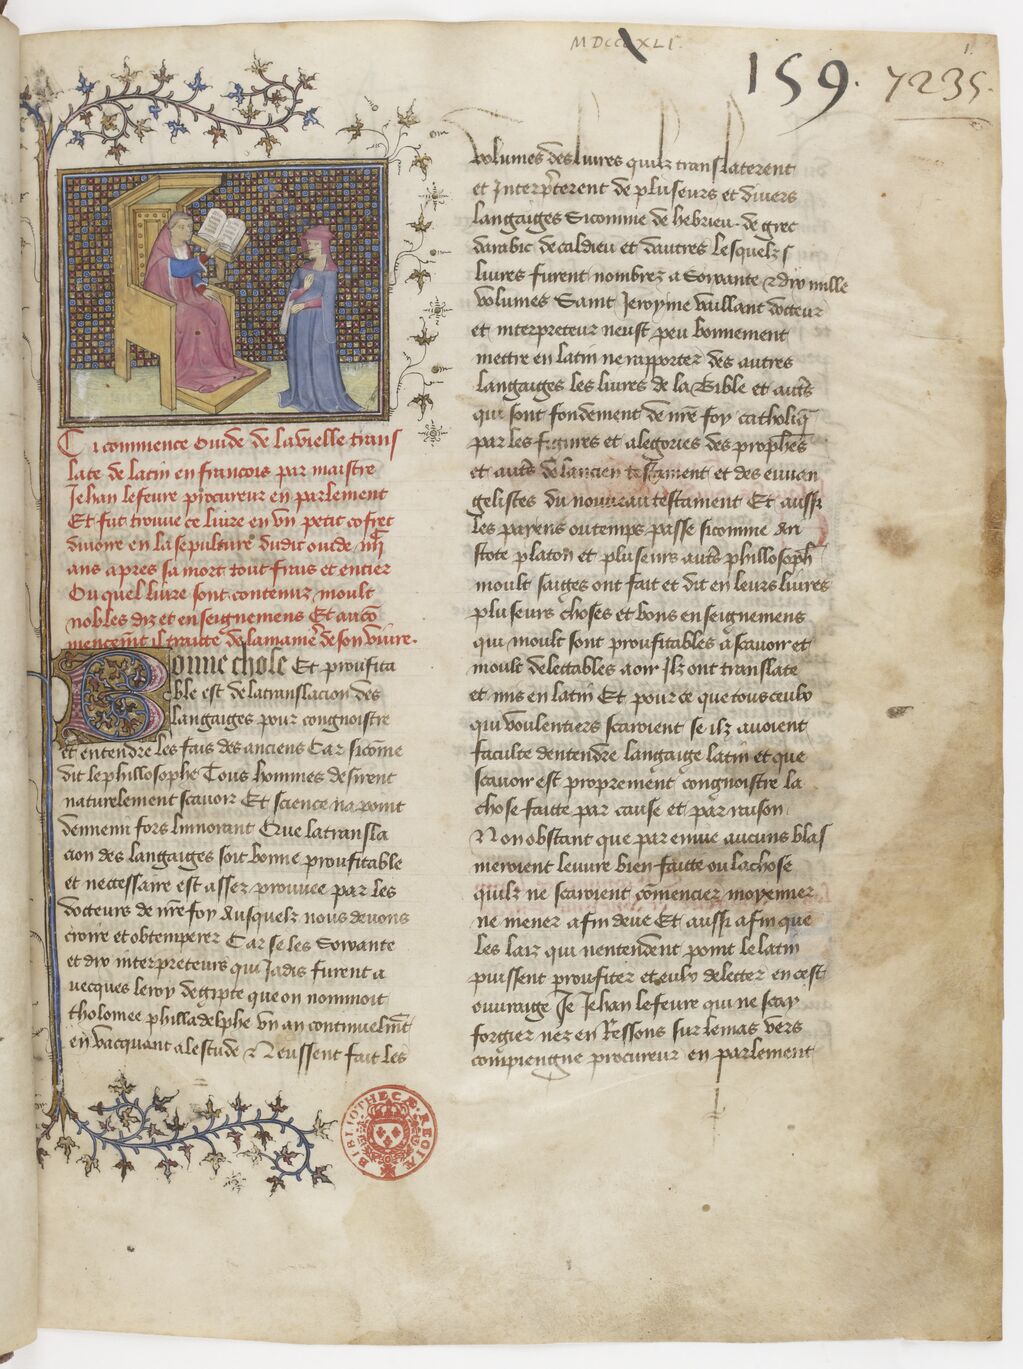 MDCCCXLI.
159.
7235.
1.
Ci commence Ouide de la vielle trans
late de latin en francois par maistre
Jehan lefeure procureur en parlement
Et fut trouue ce liure en vn petit cofret
diuoire en la sepulture dudit ouide iiij
ans apres sa mort tout frais et entier
Ou quel liure sont contenuz moult
nobles diz et enseignemens Et au com
mencemt il traicte de la maniere de son viure.
Bonne chose Et proufita
ble est de la translacion des
langaiges pour congnoistre
et entendre les fais des anciens Car sicome
dit le phillosophe Tous hommes desirent
naturelement scauoir Et science na point
dennemi fors lignorant Que la transla
cion des langaiges soit bonne proufitable
et necessaire est assez prouuee par les
docteurs de nre foy Ausquelz nous deuons
croire et obtemperer Car se les Soixante
et dix interpreteurs qui Jadis furent a
uecques le roy degipte que on nommoit
tholomee philladelphe vn an continuelmt
en vacquant a lestude Neussent fait les
volumes des liures quilz translaterent
et Interpreterent de pluseurs et diuers
langaiges Sicomme de hebrieu. de grec
darabic de caldieu et dautres Lesquelz
liures furent nombrez a Soixante & dix mille
volumes Saint Jeroyme vaillant docteur
et interpreteur neust peu bonnement
mettre en latin ne rapporter des autres
langaiges les liures de la Bible et auts
qui sont fondement de nre foy catholiq
par les figures et alegories des prophes
et auts de lancien testament et des euuan
gelistes du nouueau testament Et aussi
les payens ou temps passe sicomme Ari
stote platon et pluseurs auts phillosoph
moult saiges ont fait et dit en leurs liures
pluseurs choses et bons enseignemens
qui moult sont proufitables a scauoir et
moult delectables a oir Ilz ont translate
et mis en latin Et pour ce que tous ceulx
qui voulentiers scaroient se ilz auoient
faculte dentendre langaige latin et que
scauoir est proprement congnoistre la
chose faicte par cause et par raison
Nonobstant que par enuie aucuns blas
meroient leuure bien faicte ou la chose
quilz ne scaroient comencier moyenner
ne mener a fin deue Et aussi afin que
les laiz qui nentendent point le latin
puissent proufiter et eulx delecter en cest
ouuraige Je Jehan lefeure qui ne scay
forgier nez en Ressons sur lemas vers
compiengne procureur en parlement
BIBLIOTHECÆ REGIÆ